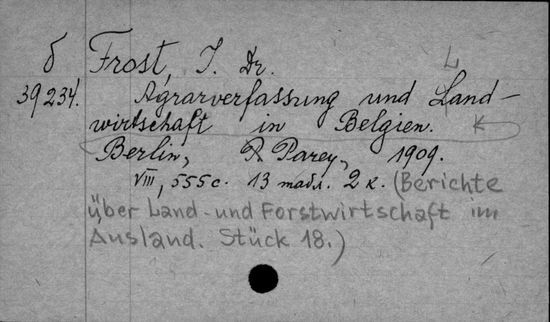 б Frost, J. Dr.
39234. Agrarverfassung und Land-
wirtschaft in Belgien.
Berlin, P. Parey, 1909.
VIII, 555 с. 13 табл. 2 к. (Berichte
über Land- und Forstwirtschaft im
Ausland. Stück 18.)